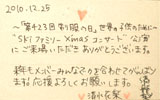 2010.12.25
～"第423回 彩り服の日"世界の子供の為に～
"SKiファミリー Xmasコンサート"公演に
ご来場いただきありがとうございます。
来年もメンバーみなで力を合わせてがんばり
ますす応援よろしくお願いします。
清水花菜